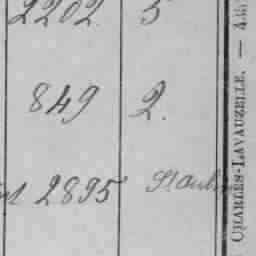 2202 5
849 2.
2895 St Aubin
CHARLES-LAVAUZELLE. —